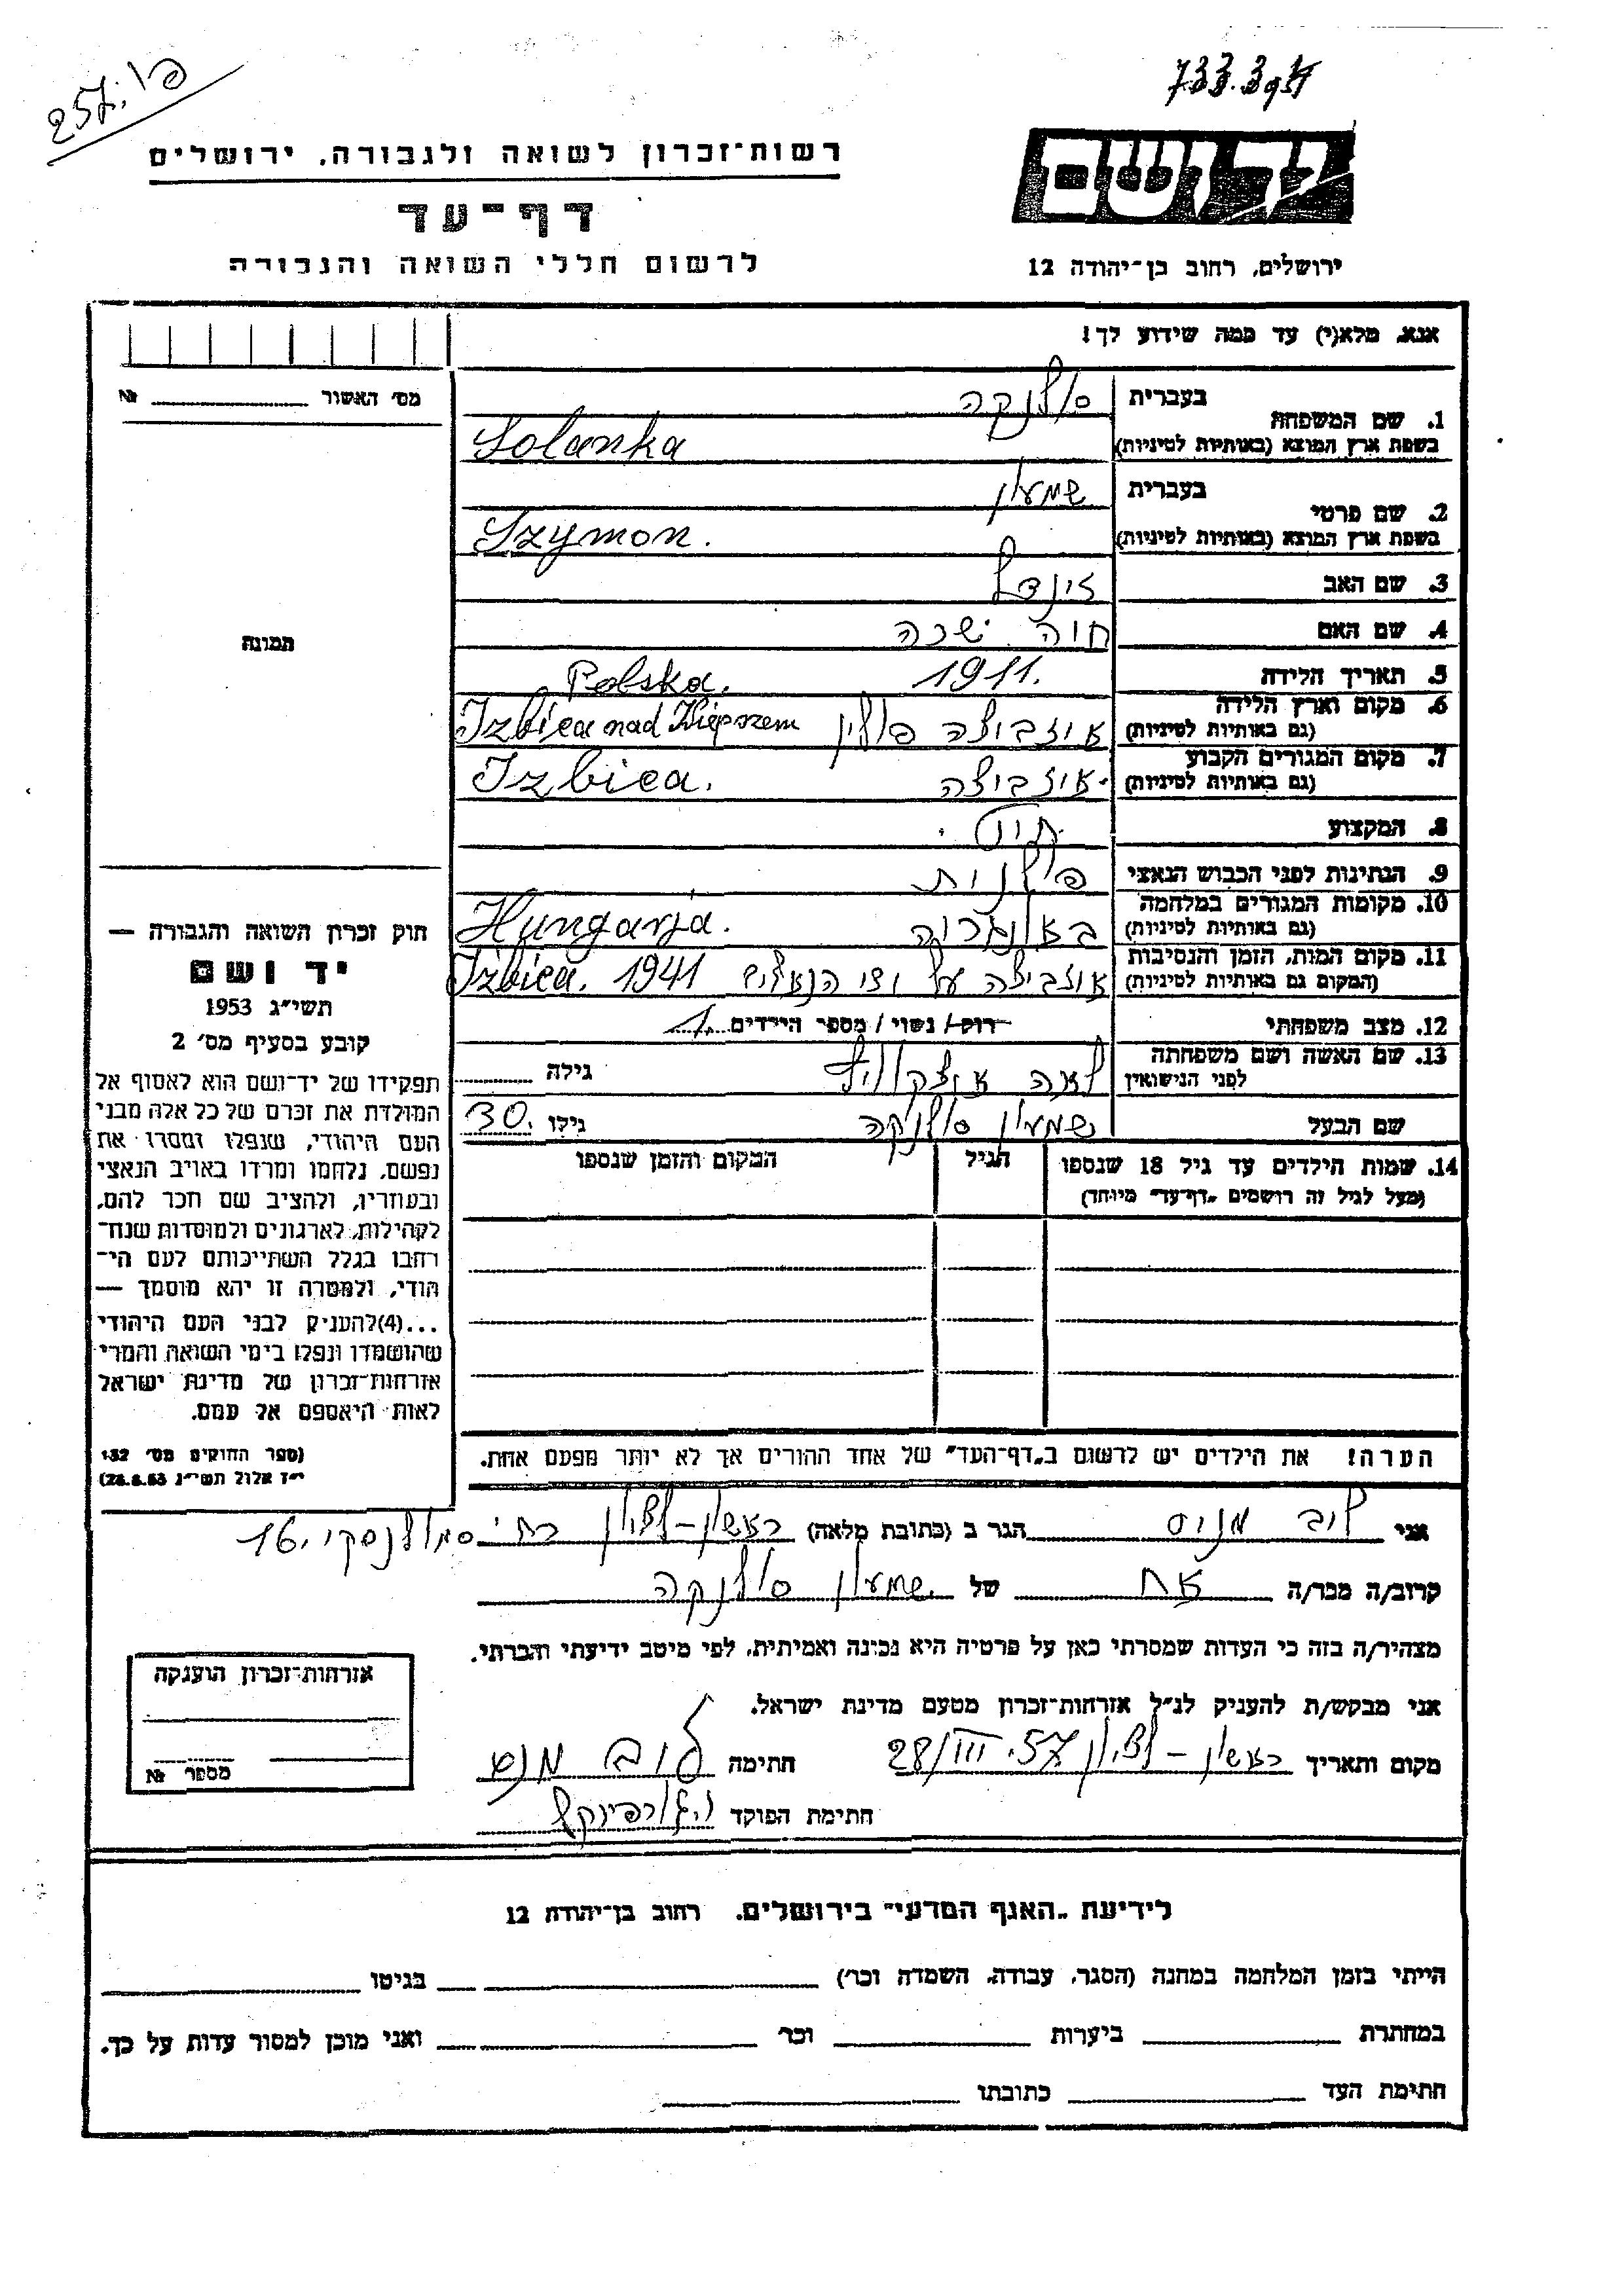 257.פ1
רשות־זכרון לשואה ולגבורה, ירושלים
דף־עד
לרשום חללי השואה והגבורה
יד ושם
ירושלים, רחוב בן־יהודה 12
אנא, מלא(י) עד כמה שידוע לך!
מס' האשור №
1. שם המשפחה בעברית סולנקה
בשפת ארץ המוצא (באותיות לטיניות) Solanka
2. שם פרטי בעברית שמעון
בשפת ארץ המוצא (באותיות לטיניות) Szymon.
3. שם האב זינדל
4. שם האם חוה
5. תאריך הלידה 1911. Polska.
6. מקום וארץ הלידה (גם באותיות לטיניות) איזביצה פולין Izbica nad Wieprzem
7. מקום המגורים הקבוע (גם באותיות לטיניות) איזביצה Izbica.
8. המקצוע
9. הנתינות לפני הכבוש הנאצי פולנית
10. מקומות המגורים במלחמה (גם באותיות לטיניות) Hungarja.
11. מקום המות, הזמן והנסיבות (המקום גם באותיות לטיניות) איזביצה על ידי הנאצים Izbica. 1941
12. מצב משפחתי רוק/ נשוי/ מספר הילדים 1.
13. שם האשה ושם משפחתה לפני הנישואין לאה גילה
שם הבעל שמעון סולנקה גילו 30.
14. שמות הילדים עד גיל 18 שנספו הגיל המקום והזמן שנספו
(מעל לגיל זה רושמים „דף־עד" מיוחד)
הערה! את הילדים יש לרשום ב„דף־העד" של אחד ההורים אך לא יותר מפעם אחת.
תמונה
חוק זכרון השואה והגבורה —
יד ושם
תשי"ג 1953
קובע בסעיף מס' 2
תפקידו של יד־ושם הוא לאסוף אל
המולדת את זכרם של כל אלה מבני
העם היהודי, שנפלו ומסרו את
נפשם, נלחמו ומרדו באויב הנאצי
ובעוזריו, ולהציב שם וזכר להם,
לקהילות, לארגונים ולמוסדות שנח־
רבו בגלל השתייכותם לעם הי־
הודי, ולמטרה זו יהא מוסמך —
...(4)להעניק לבני העם היהודי
שהושמדו ונפלו בימי השואה והמרי
אזרחות־זכרון של מדינת ישראל
לאות היאספם אל עמם.
(ספר החוקים מס' 132
י"ז אלול תשי"ג 28.8.53)
אני לוב מניס הגר ב (כתובת מלאה) ראשון-לציון רח' סמולנסקי 16.
קרוב/ה מכר/ה אח של שמעון סולנקה
מצהיר/ה בזה כי העדות שמסרתי כאן על פרטיה היא נכונה ואמיתית, לפי מיטב ידיעתי והכרתי.
אני מבקש/ת להעניק לנ"ל אזרחות־זכרון מטעם מדינת ישראל.
מקום ותאריך ראשון-לציון 28/III.57 חתימה לוב מניס
חתימת הפוקד
אזרחות־זכרון הוענקה
מספר №
לידיעת „האגף המדעי" בירושלים, רחוב בן־יהודה 12
הייתי בזמן המלחמה במחנה (הסגר, עבודה, השמדה וכו') בגיטו
במחתרת ביערות וכו' ואני מוכן למסור עדות על כך.
חתימת העד כתובתו